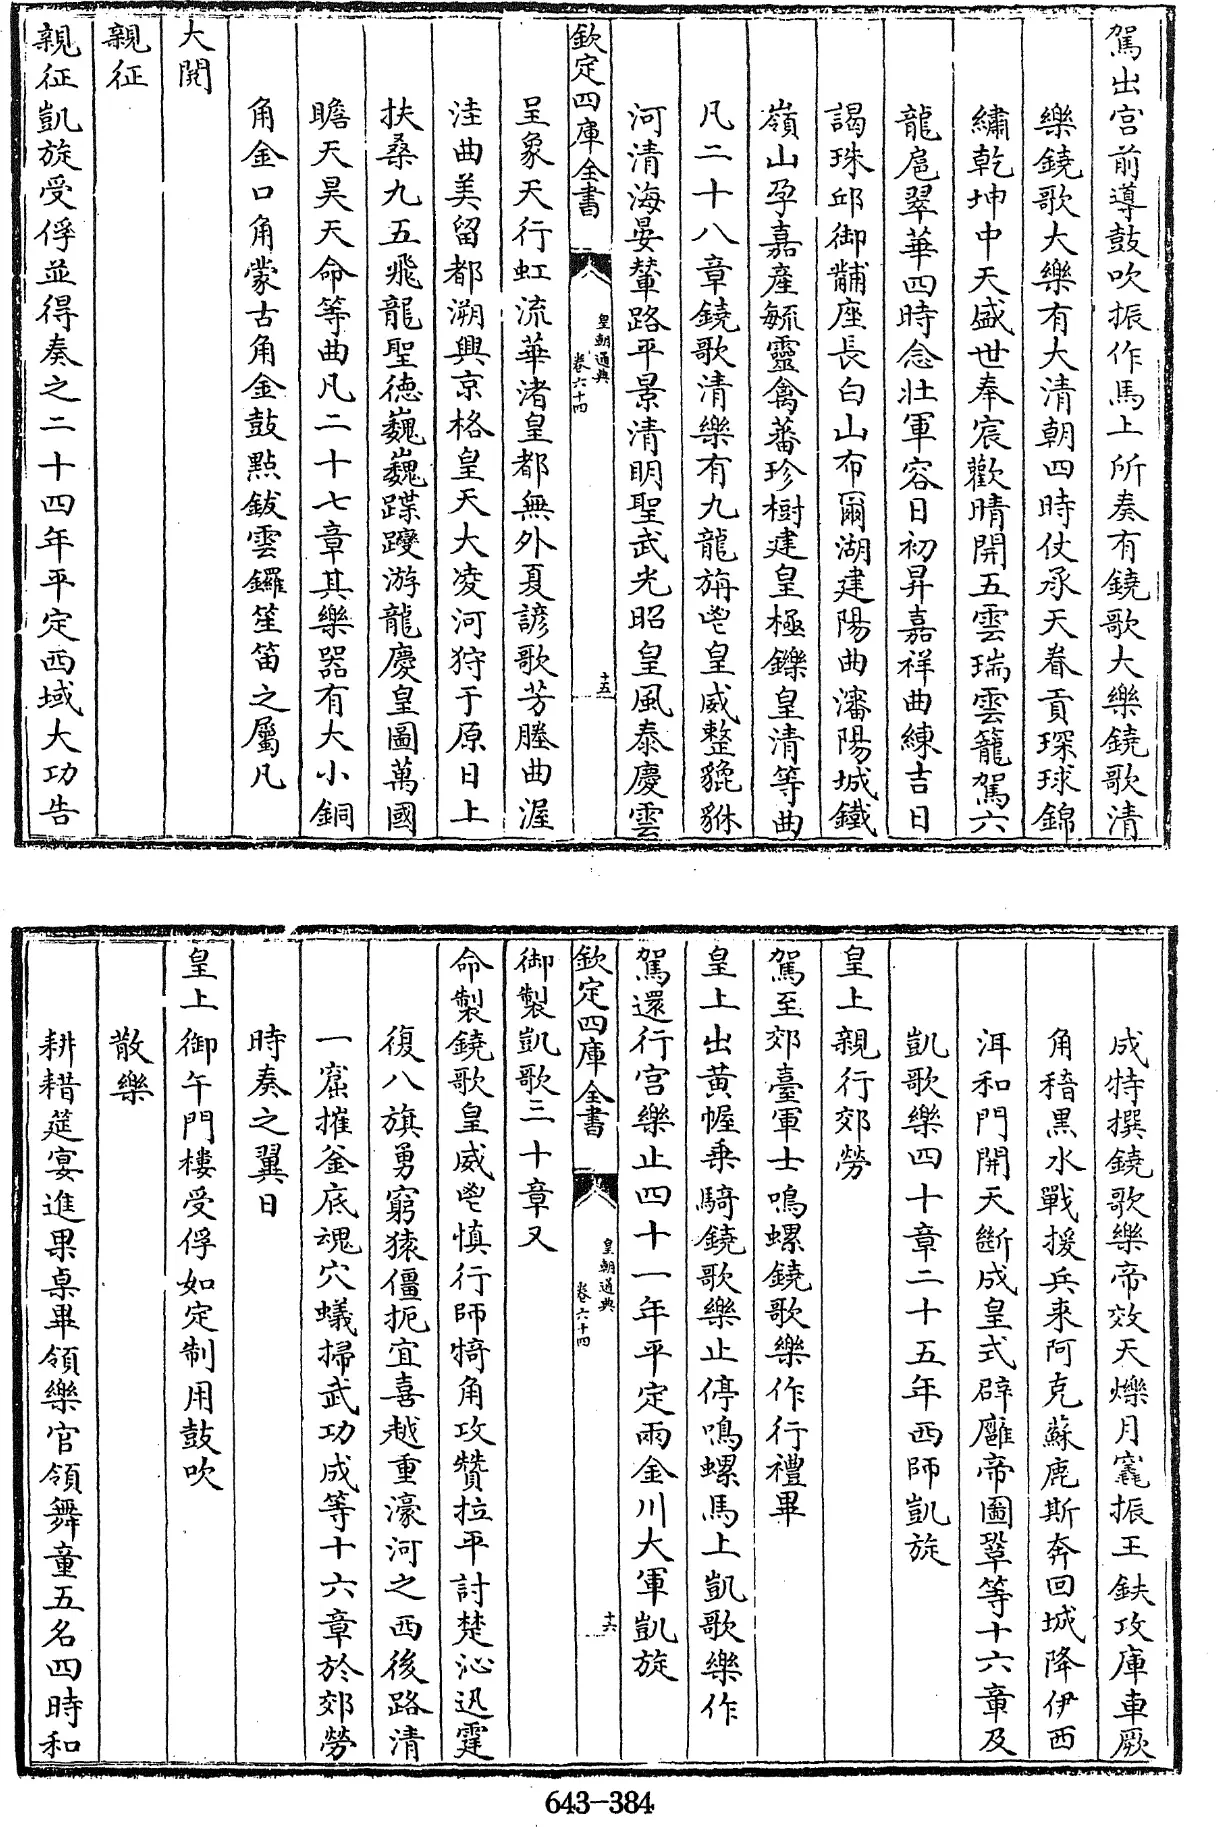 駕出宫前導鼓吹振作馬上所奏有鐃歌大樂鐃歌清
樂鐃歌大樂有大清朝四時仗承天眷貢琛球錦
繡乾坤中天盛世奉宸歡晴開五雲瑞雲籠駕六
龍扈翠華四時念壯軍容日初昇嘉祥曲練吉日
謁珠邱御黼座長白山布爾湖建陽曲瀋陽城鐵
嶺山孕嘉產毓靈禽蕃珍樹建皇極鑠皇清等曲
凡二十八章鐃歌清樂有九龍旃鬯皇威整貔貅
河清海晏輦路平景清明聖武光昭皇風泰慶雲
欽定四庫全書
皇朝通典
卷六十四
十五
呈象天行虹流華渚皇都無外夏諺歌芳塍曲渥
洼曲美留都溯興京格皇天大凌河狩于原日上
扶桑九五飛龍聖德巍巍蹀躞游龍慶皇圖萬國
瞻天昊天命等曲凡二十七章其樂器有大小銅
角金口角蒙古角金鼓點鈸雲鑼笙笛之屬凡
大閱
親征
親征凱旋受俘並得奏之二十四年平定西域大功告
成特撰鐃歌樂帝效天爍月竁振王鈇攻庫車厥
角稽黑水戰援兵來阿克蘇鹿斯奔回城降伊西
洱和門開天斷成皇式辟廱帝圖鞏等十六章及
凱歌樂四十章二十五年西師凱旋
皇上親行郊勞
駕至郊臺軍士鳴螺鐃歌樂作行禮畢
皇上出黃幄乗騎鐃歌樂止停鳴螺馬上凱歌樂作
駕還行宫樂止四十一年平定兩金川大軍凱旋
欽定四庫全書
皇朝通典
卷六十四
十六
御製凱歌三十章又
命製鐃歌皇威鬯慎行師犄角攻贊拉平討楚沁迅霆
復八旗勇窮猿僵扼宜喜越重濠河之西後路清
一窟摧釜底魂穴蟻掃武功成等十六章於郊勞
時奏之翼日
皇上御午門樓受俘如定制用鼓吹
散樂
耕耤筵宴進果桌畢領樂官領舞童五名四時和
643-384